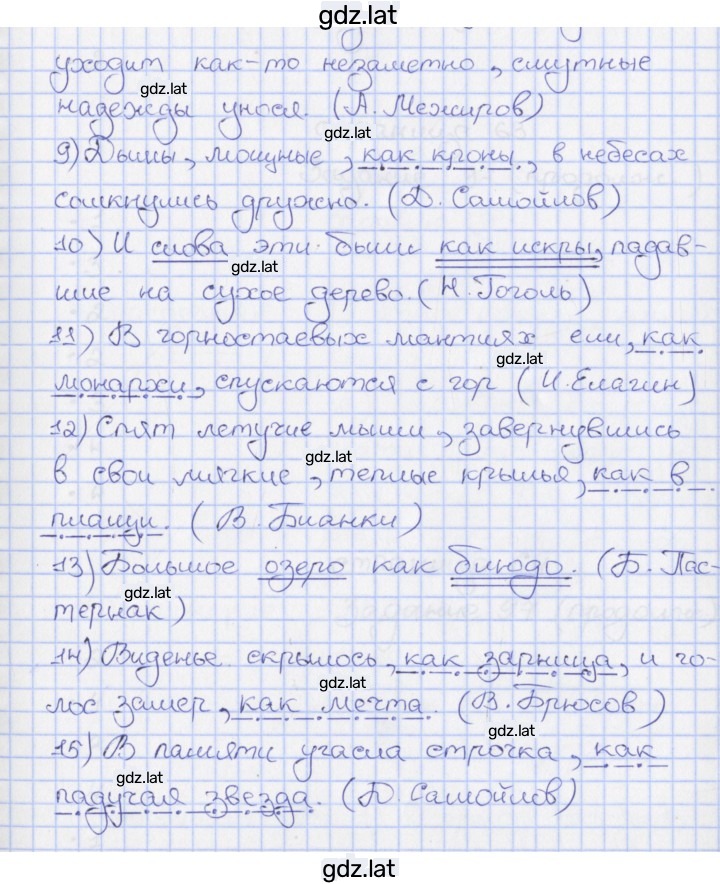 gdz.lat
уходит как-то незаметно, смутные
gdz.lat
надежды унося. (А. Межиров)
gdz.lat
9) Дымы, мощные, как кроны, в небесах
сомкнулись дружно. (Д. Самойлов)
10) И слова эти были как искры, падав-
gdz.lat
шие на сухое дерево. (Н. Гоголь)
11) В горностаевых мантиях ели, как
gdz.lat
монархи, спускаются с гор (И. Елагин)
12) Спят летучие мыши, завернувшись
gdz.lat
в свои мягкие, теплые крылья, как в
плащи. (В. Бианки)
13) Большое озеро как блюдо. (Б. Пас-
gdz.lat
тернак)
14) Виденье скрылось, как зарница, и го-
gdz.lat
лос замер, как мечта. (В. Брюсов)
gdz.lat
15) В памяти угасла строчка, как
gdz.lat
падучая звезда. (Д. Самойлов)
gdz.lat
gdz.lat